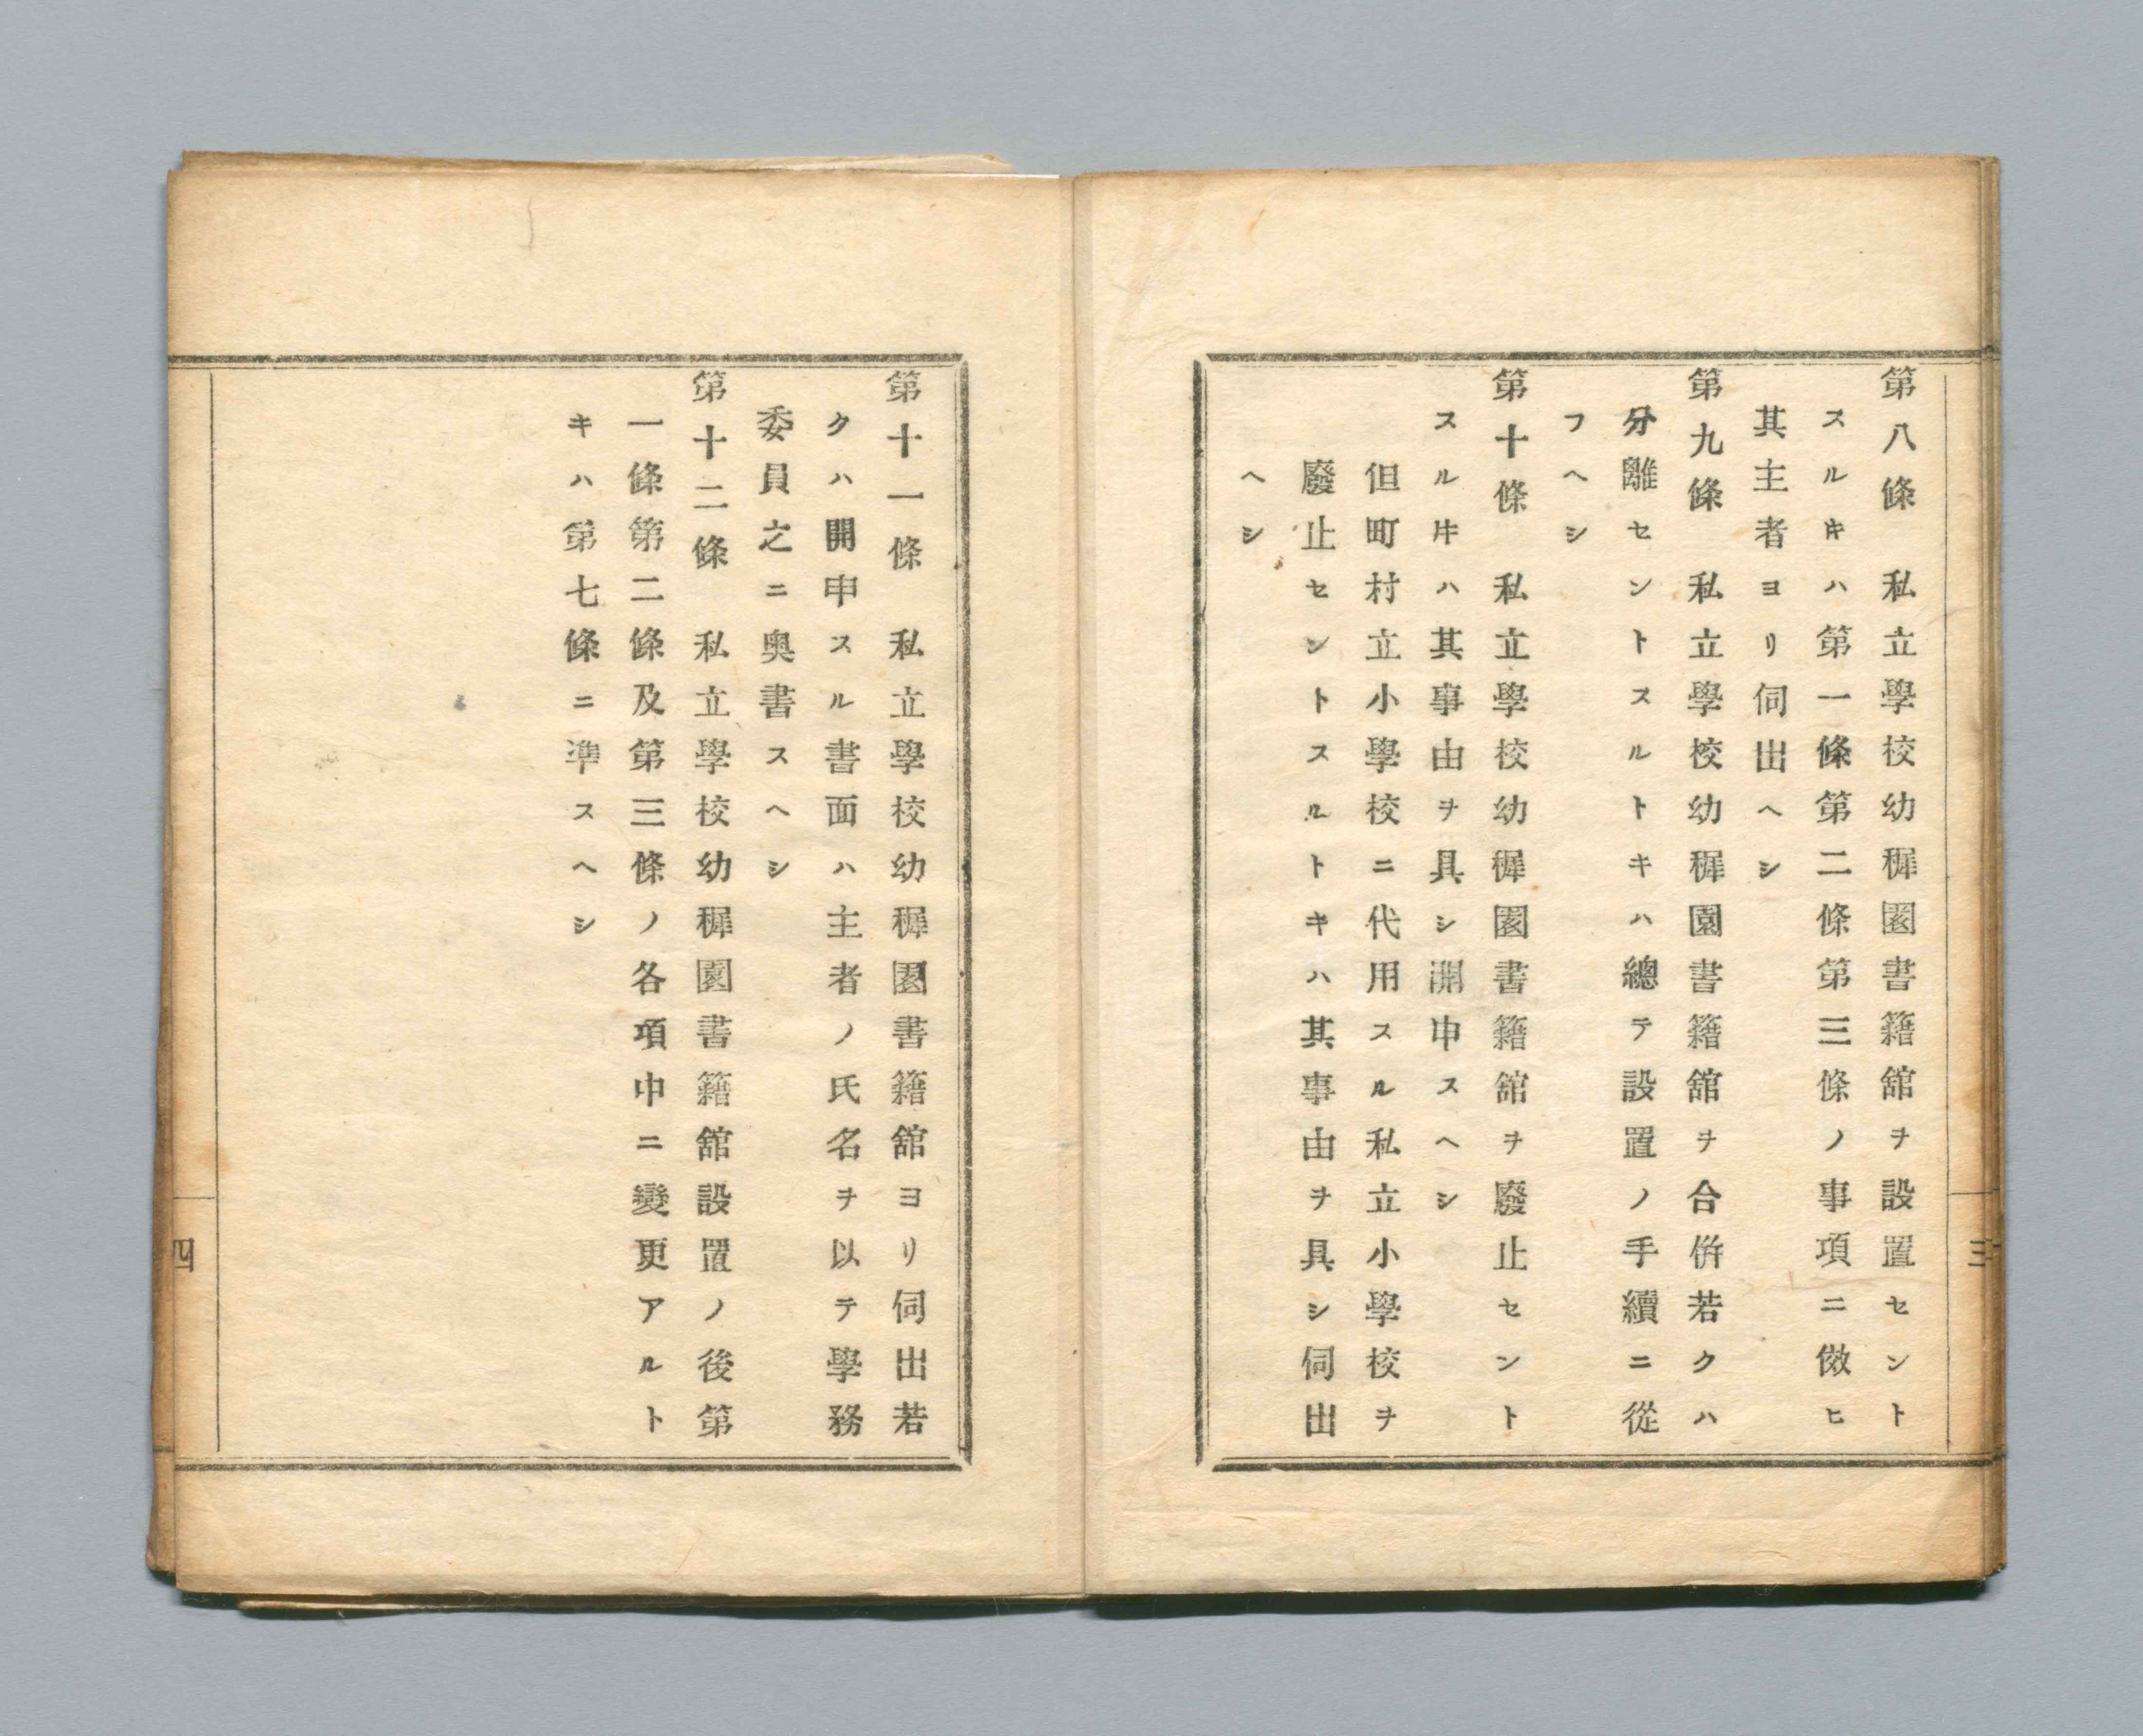 第八條　私立學校幼穉園書籍舘ヲ設置セント
スルキハ第一條第二條第三條ノ事項ニ倣ヒ
其主者ヨリ伺出ヘシ
第九條　私立學校幼穉園書籍舘ヲ合倂若クハ
分離セントスルトキハ總テ設置ノ手續ニ從
フヘシ
第十條　私立學校幼穉園書籍舘ヲ廢止セント
スルキハ其事由ヲ具シ開申スヘシ
但町村立小學校ニ代用スル私立小學校ヲ
廢止セントスルトキハ其事由ヲ具シ伺出
ヘシ
三
第十一條　私立學校幼穉園書籍舘ヨリ伺出若
クハ開申スル書面ハ主者ノ氏名ヲ以テ學務
委員之ニ奥書スヘシ
第十二條　私立學校幼穉園書籍舘設置ノ後第
一條第二條及第三條ノ各項中ニ變更アルト
キハ第七條ニ準スヘシ
四